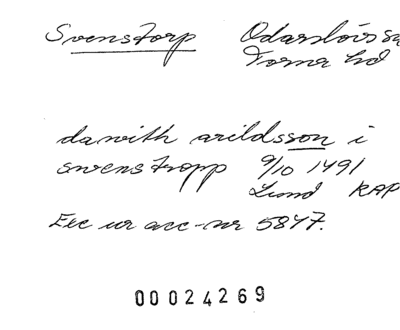 Svenstorp Odarslövs sn
Torna hd
dawith arildsson i
swenstropp 9/10 1491
Lund RAP
Exc ur acc-nr 5847.
00024269